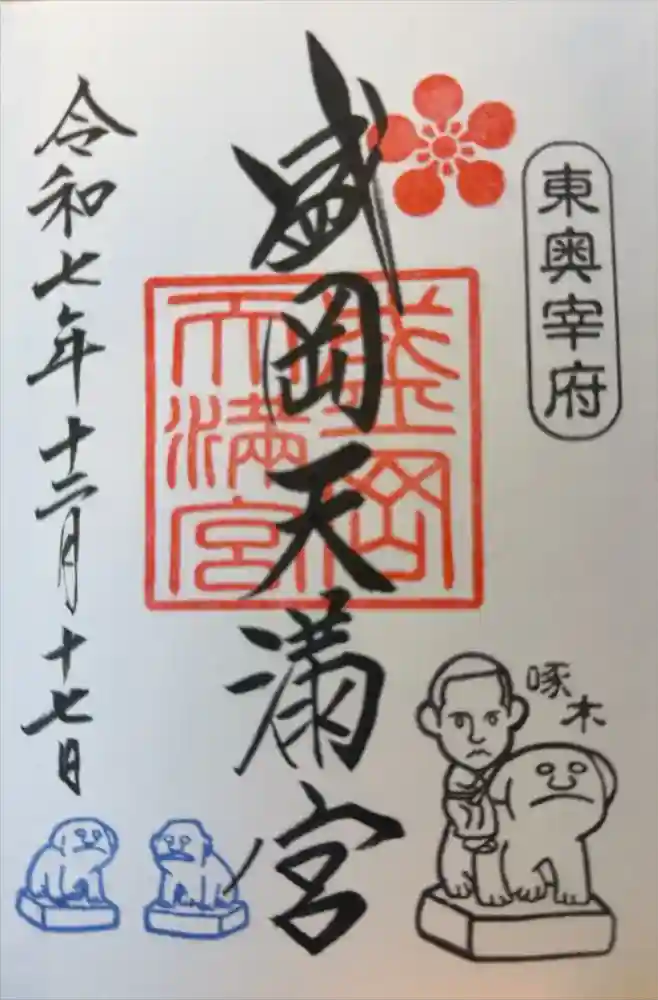 東奥宰府
盛岡天満宮
盛岡
天満宮
令和七年十二月十七日
啄木